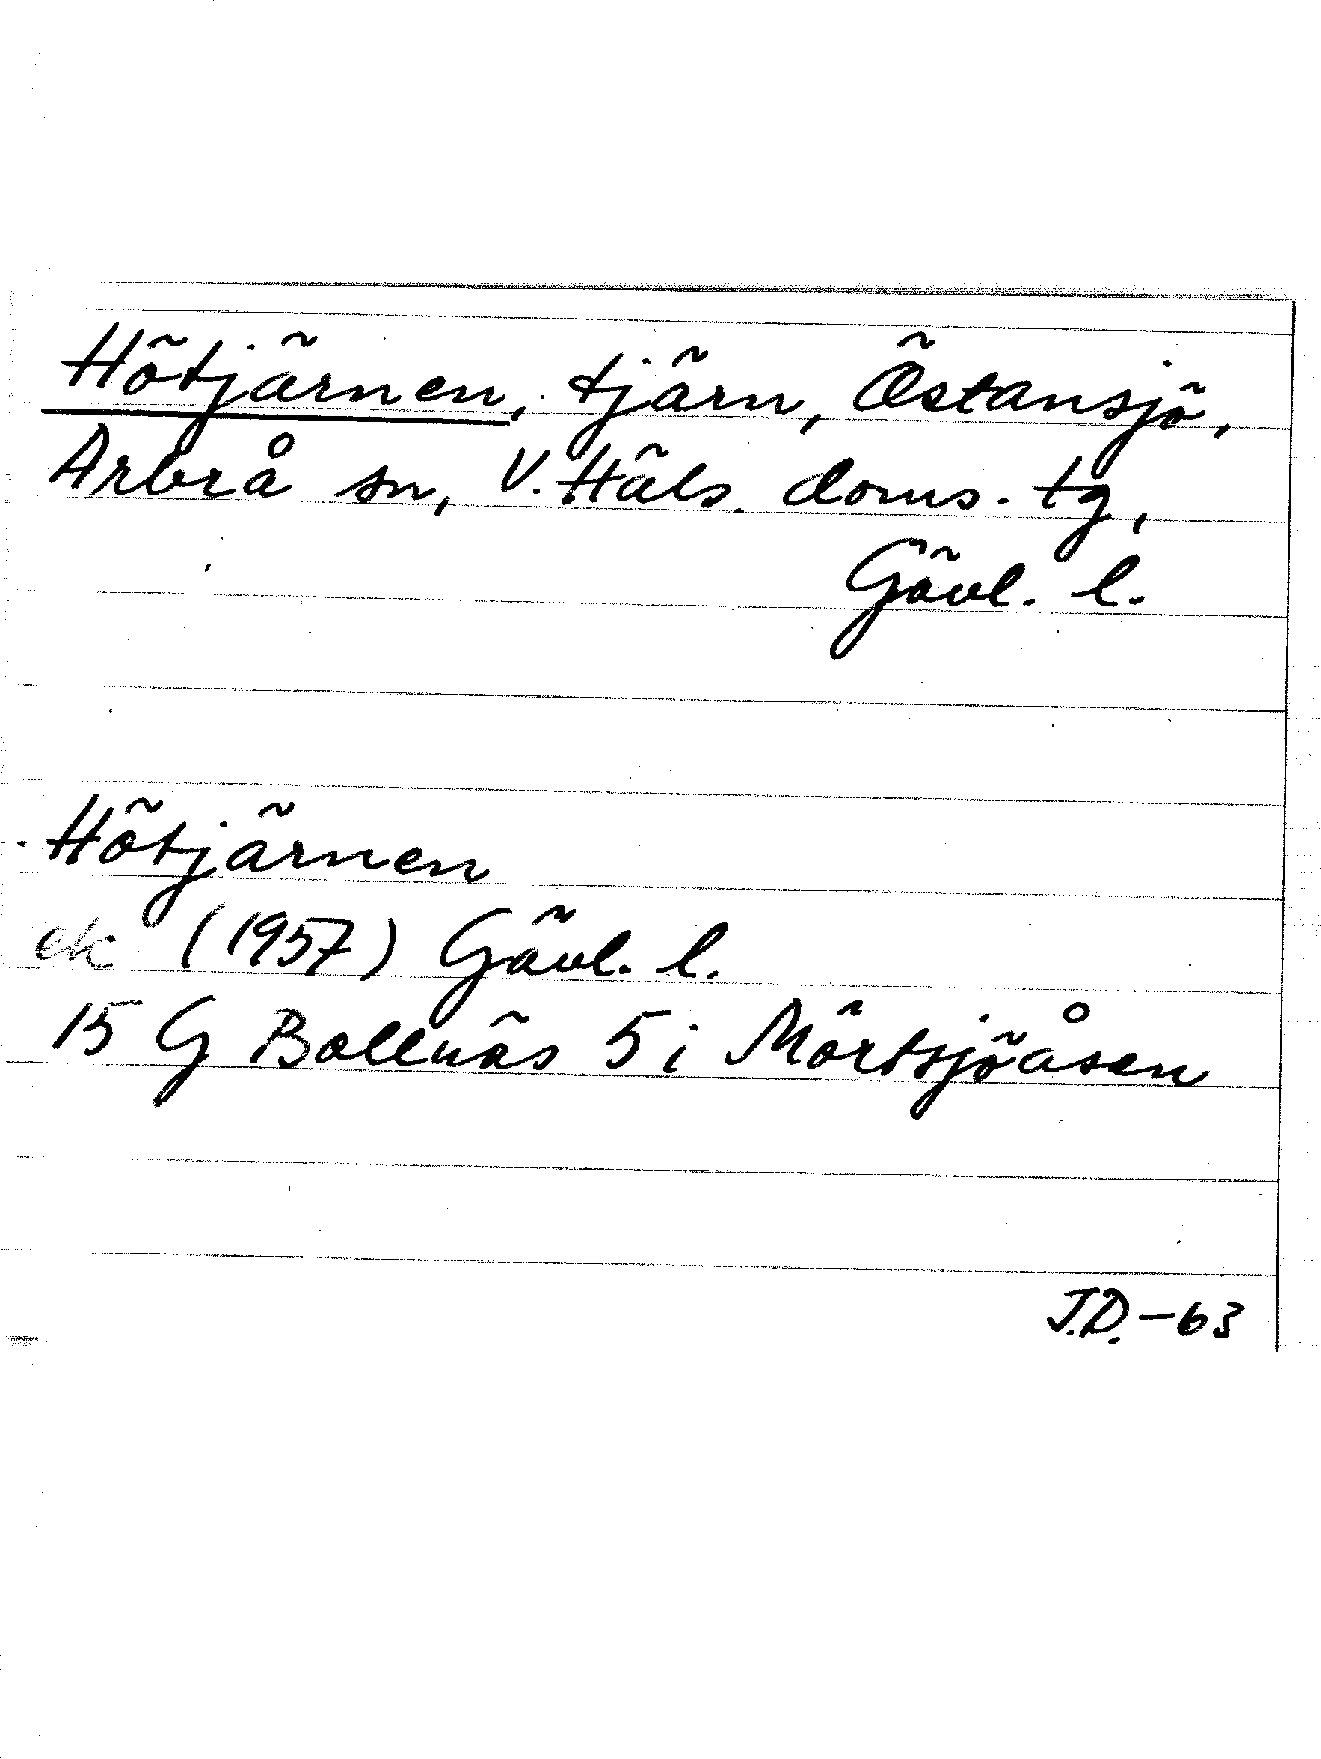 Hötjärnen, tjärn, Östansjö,
Arbrå sn, V. Häls. doms. tg,
Gävl. l.
Hötjärnen
ek (1957) Gävl. l.
15 G Bollnäs 5 i Mörtsjöåsen
J.D. -63